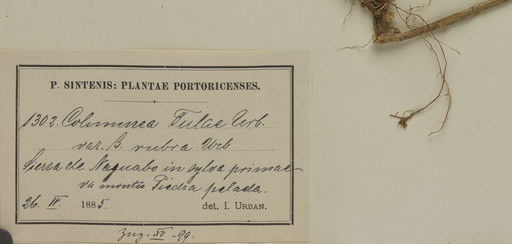 P. SINTENIS: PLANTAE PORTORICENSES.
1302. Columnea Tulae Urb.
var. β. rubra Urb
Sierra de Naguabo in sylva primae-
va montis Piedra pelada.
26. IV. 1885. det. I. URBAN.
Zug. XII - 99.